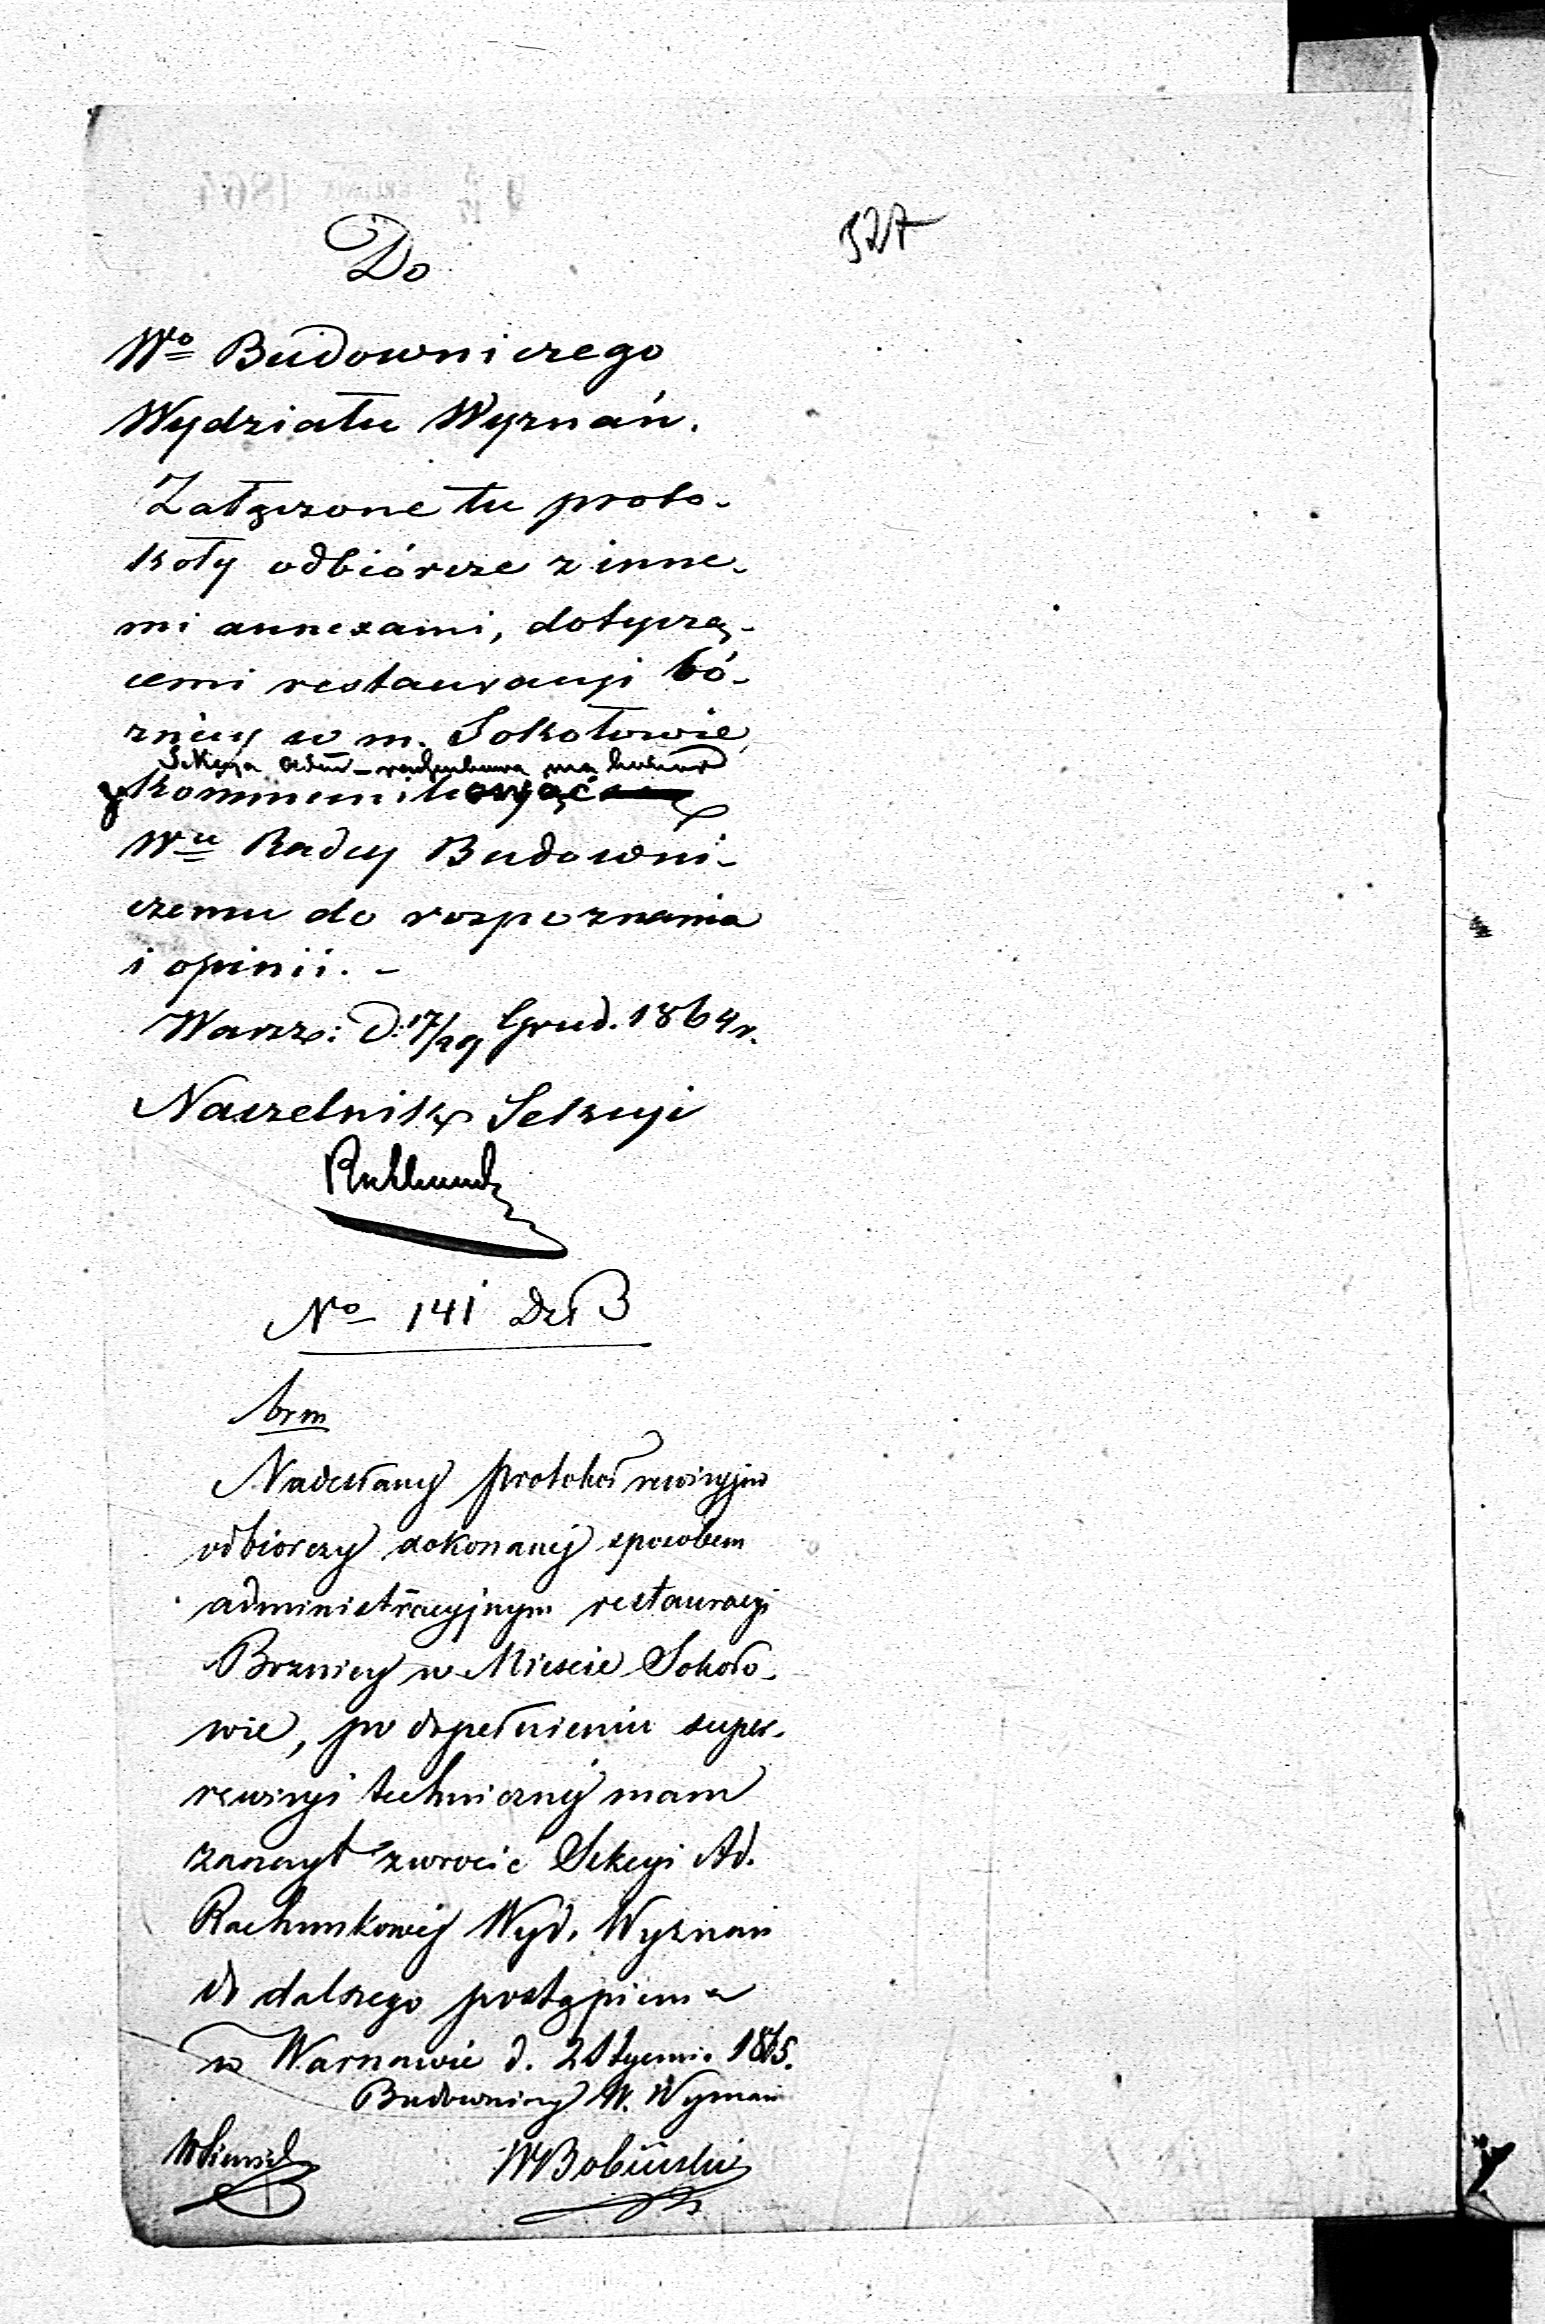 327
Do
Wo Budowniczego
Wydziału Wyznań.
Załączone tu proto-
koły odbiórcze z inne-
mi annexami, dotyczą-
cemi restauracyi bó-
żnicy w m. Sokołowie,
Sekcya Adm-rachunkowa ma honor
zkommunikować
Wu Radcy Budowni-
czemu do rozpoznania
i opinii. -
Warsz: d: 17/29 Grud. 1864 r.
Naczelnik Sekcyi
No 141 DzB
brm
Nadesłany protokoł rewizyjno
odbiorczy dokonanej sposobem
administracyjnym restauracyi
Bożnicy w Mieście Sokoło-
wie, po dopełnieniu super-
rewizyi technicznej mam
zaszczyt zwrocić Sekcyi Ad.
Rachunkowej Wyd. Wyznań
do dalszego postąpienia
w Warszawie d. 2 Stycznia 1865.
Budowniczy W. Wyznań
WBobiński